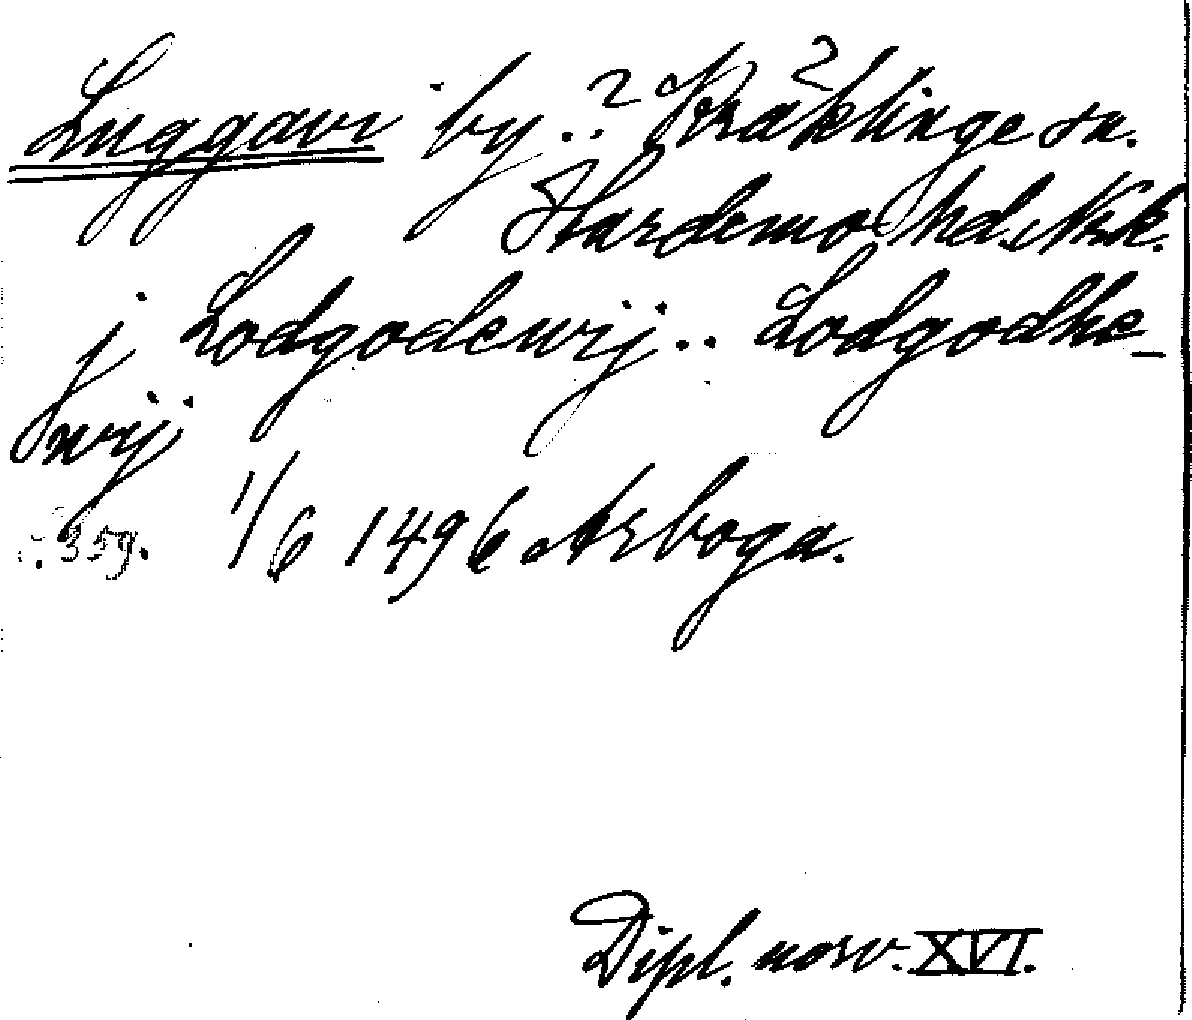 Luggavi by..? Kräklinge sn.
Hardemo hd. Nrk.
j Lodgodewij.. Lodgodhe-
wij
s. 359. 1/6 1496 Arboga.
Dipl. norv. XVI.